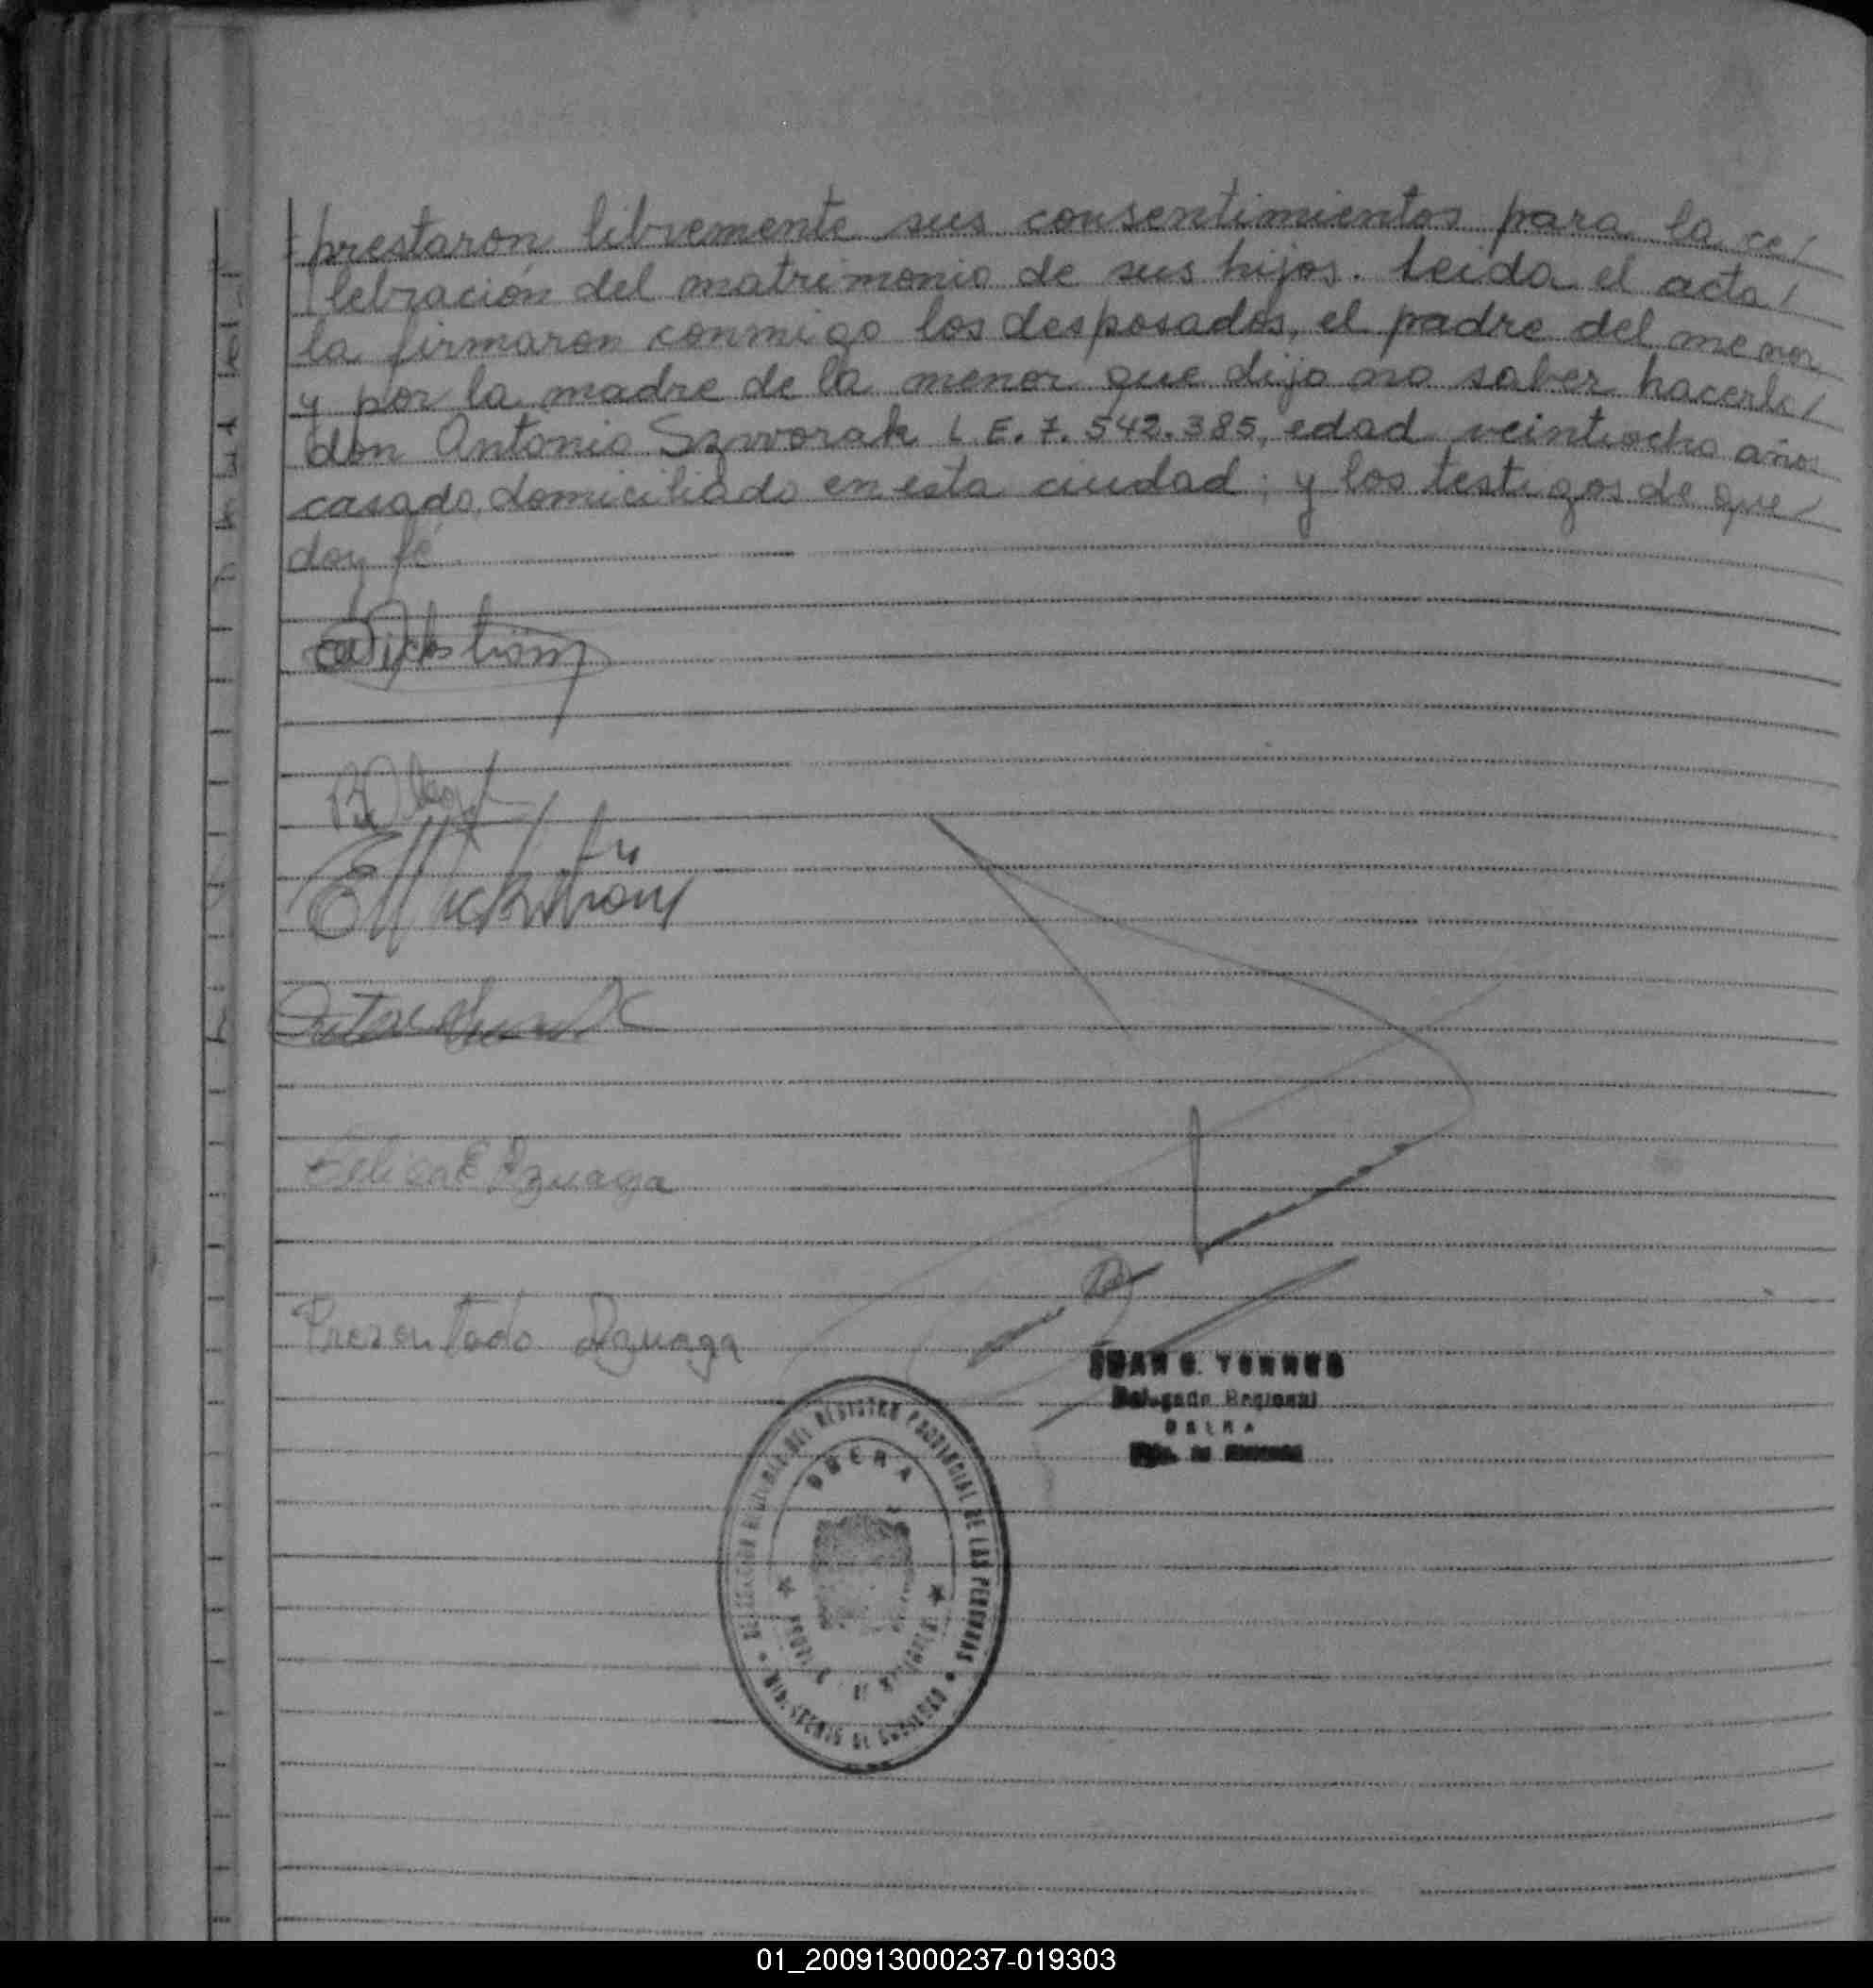 prestaron libremente sus consentimientos para la ce/
lebración del matrimonio de sus hijos. Leida el acta/
la firmaron conmigo los desposados, el padre del menor
y por la madre de la menor que dijo no saber hacerlo/
don Antonio Szworak L E. 7. 542.385, edad veintiocho años
casado, domiciliado en esta ciudad; y los testigos de que/
doy fé
E Azuaga
Presentado Azuaga
JUAN TORRES
Delegado Regional
OBERA
REGISTRO PROVINCIAL DE LAS PERSONAS
OBERA
MINISTERIO DE GOBIERNO
01_200913000237-019303